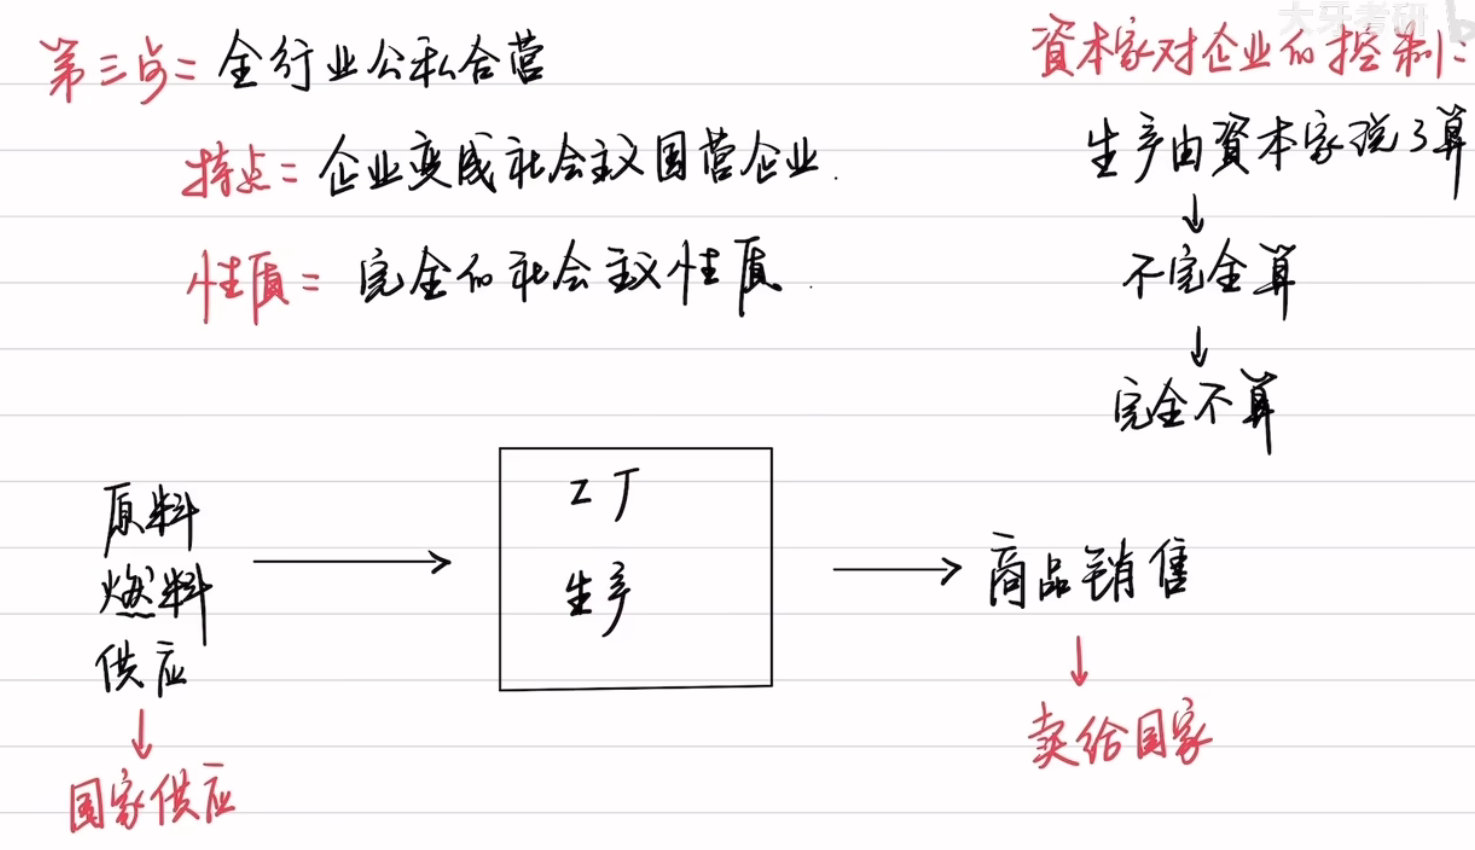 第三步=全行业公私合营
特点=企业变成社会主义国营企业.
性质=完全的社会主义性质.
大牙考研 b
資本家对企业的控制:
生产由資本家说了算
↓
不完全算
↓
完全不算
原料
燃料
供应
↓
国家供应
→
工厂
生产
→
商品销售
↓
卖给国家